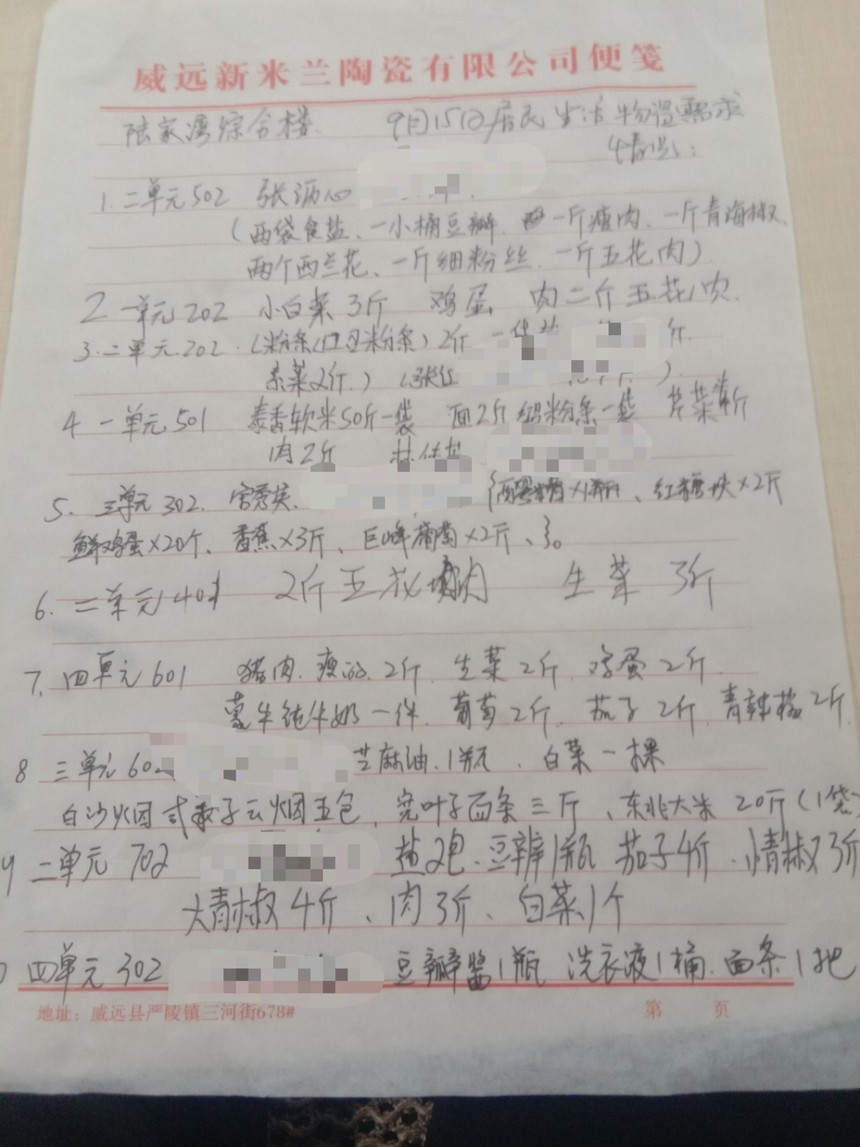 威远新米兰陶瓷有限公司便笺
陆家湾综合楼 9月15日居民生活物资需求
情况：
1.二单元502 张
(两袋食盐、一小桶豆瓣、一斤瘦肉、一斤青海椒
两个西兰花、一斤细粉丝、一斤五花肉)
2 一单元202 小白菜3斤 鸡蛋 肉二斤五花肉
3.二单元202 (粉条(红苕粉条)2斤 一 斤
菜2斤.)
4 一单元501 泰香软米50斤一袋 面2斤 细粉条一袋 芹菜 斤
肉2斤
5. 三单元302. 红糖块×2斤
鲜鸡蛋×20个、香蕉×3斤、巨峰葡萄×2斤、}。
6. 二单元401 2斤五花肉 生菜3斤
7. 四单元601 猪肉.瘦的.2斤 生菜2斤 鸡蛋2斤
蒙牛纯牛奶一件. 葡萄2斤. 茄子2斤. 青辣椒2斤
8 三单元602 芝麻油.1瓶. 白菜一棵
白沙烟 云烟五包、宽叶子面条三斤、东北大米20斤(1袋)
9 二单元702 盐2包.豆瓣1瓶 茄子4斤.小青椒3斤
大青椒4斤、肉3斤、白菜1个
四单元302 豆瓣酱1瓶 洗衣液1桶.面条1把
地址：威远县严陵镇三河街678# 第 页